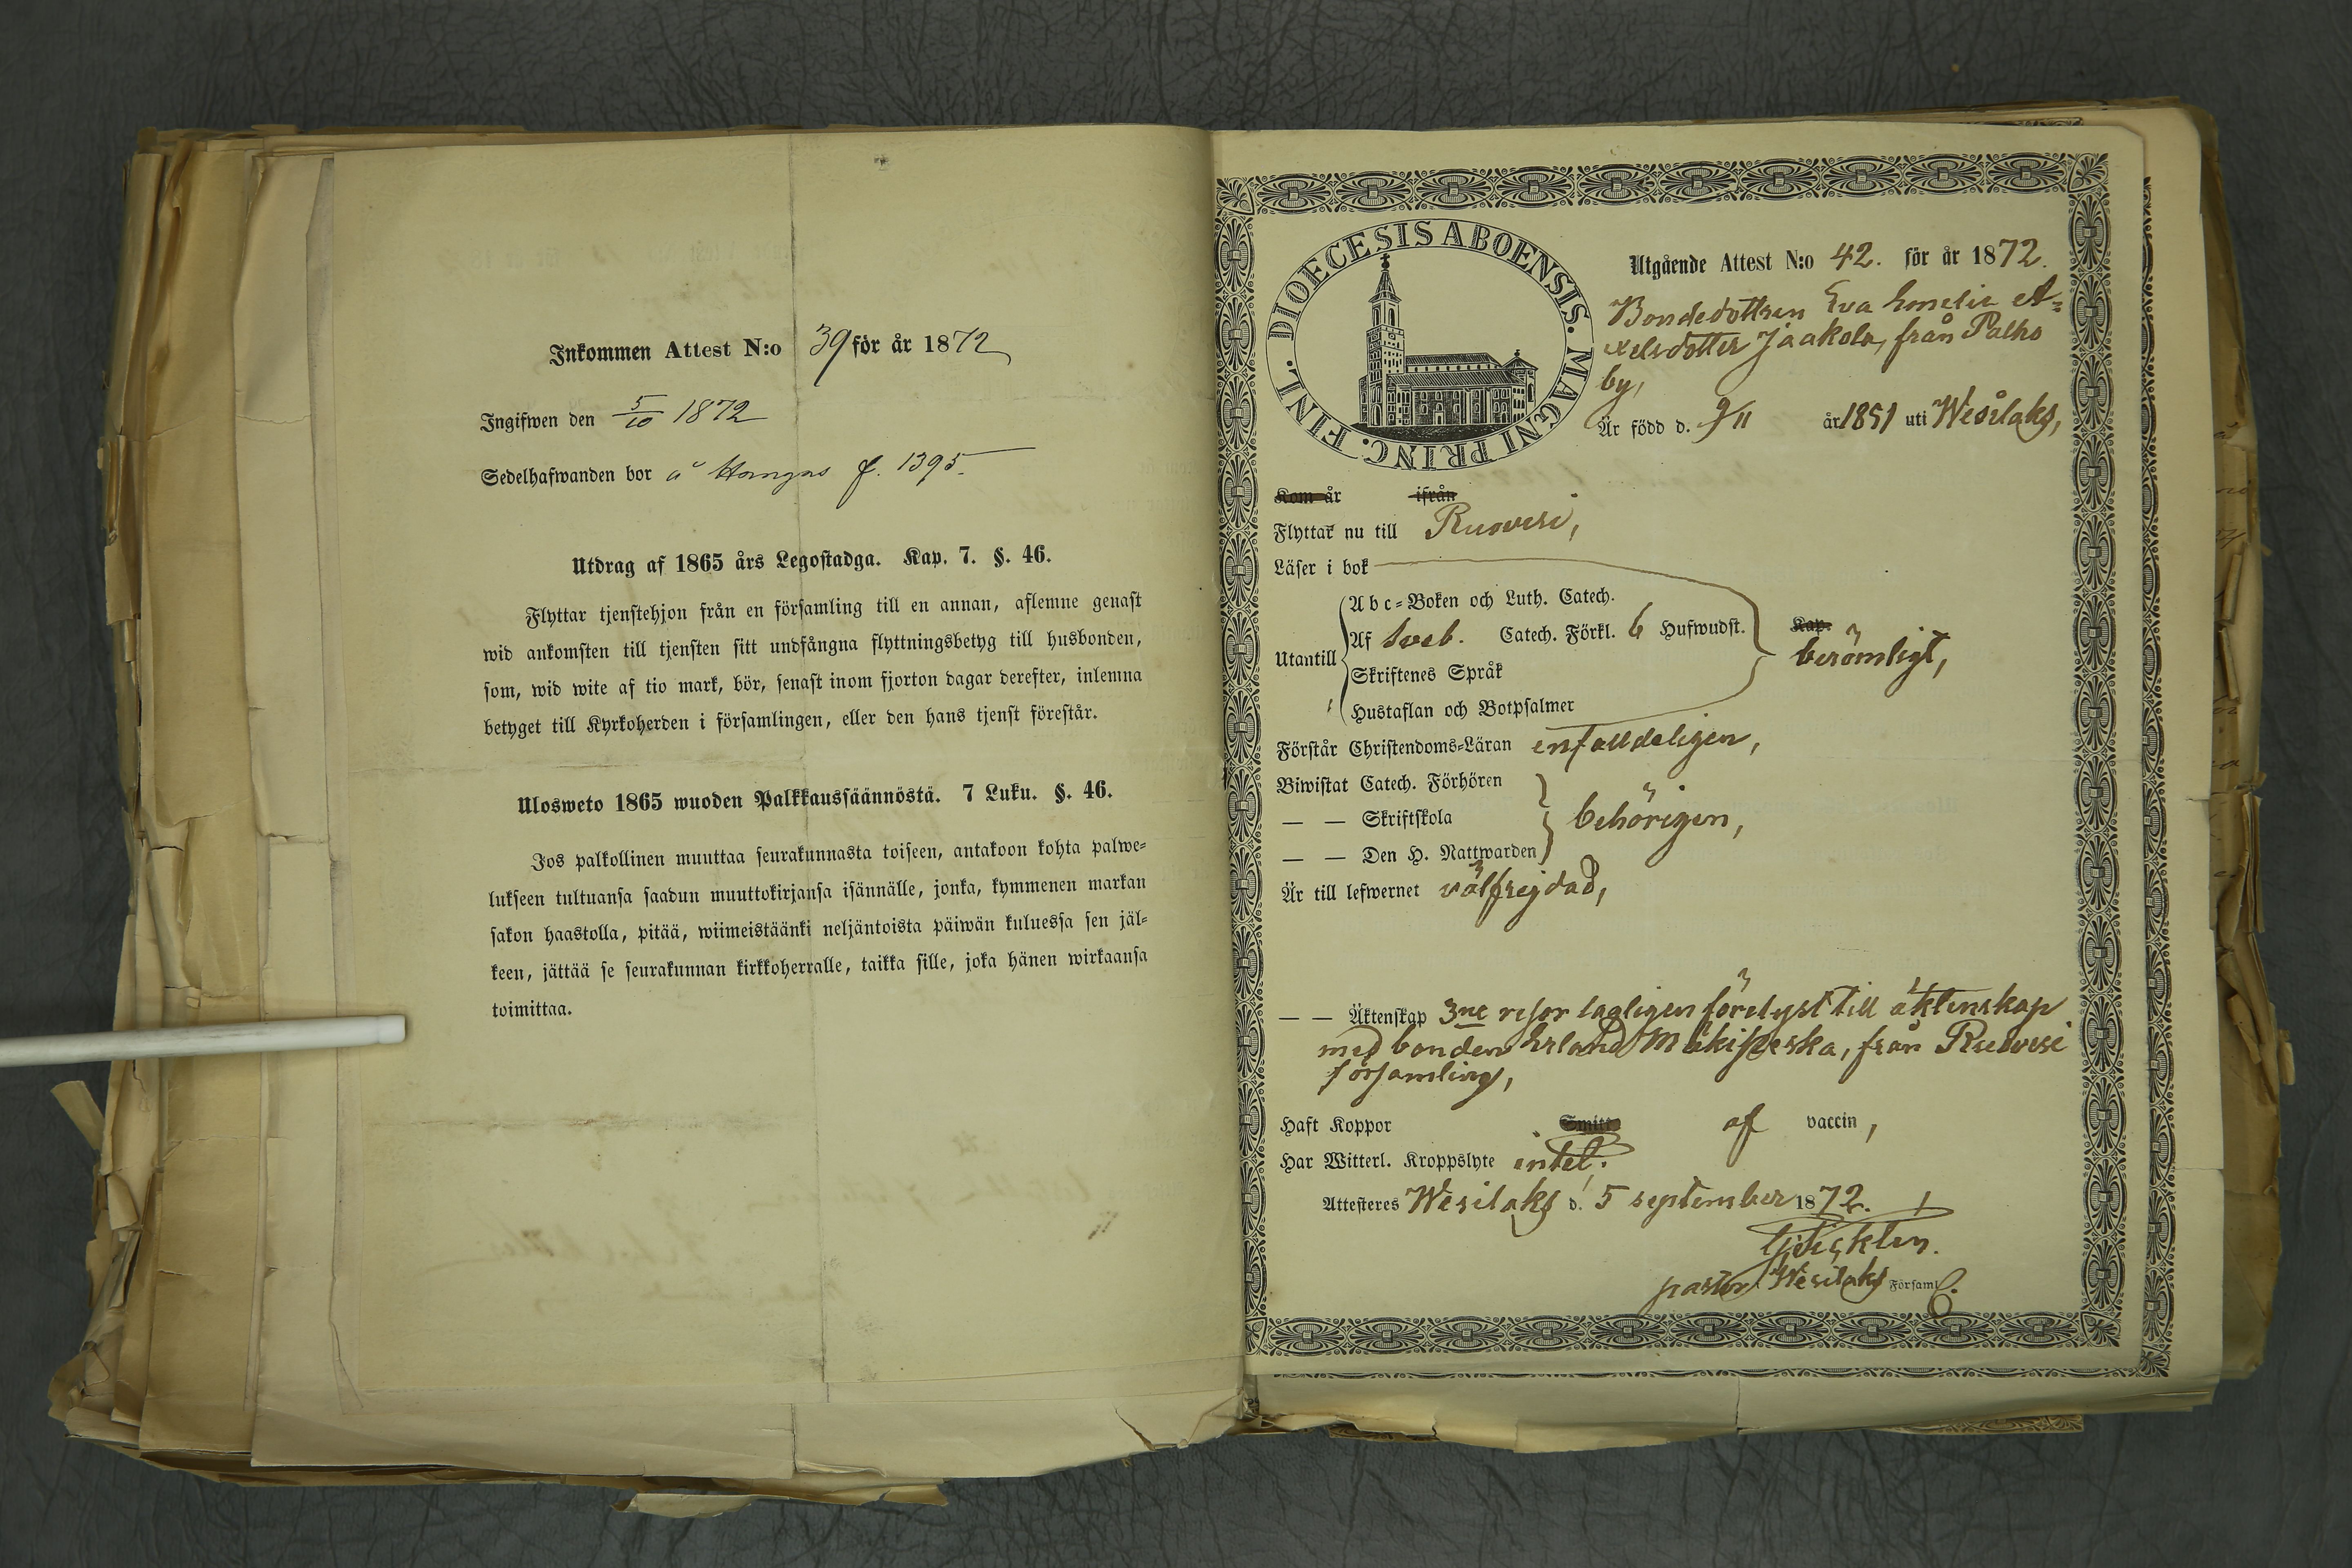 Inkommen Attest N:o 39 för år 1872
Ingifwen den 5/10 1872
Sedelhafwanden bor å Hangas f. 1395.
Utdrag af 1865 års Legostadga. Kap. 7. §. 46.
Flyttar tjenstehjon från en församling till en annan, aflemne genast
wid ankomsten till tjensten sitt undfångna flyttningsbetyg till husbonden,
som, wid wite af tio mark, bör, senast inom fjorton dagar derefter, inlemna
betyget till Kyrkoherden i församlingen, eller den hans tjenst förestår.
Ulosweto 1865 wuoden Palkkaussäännöstä. 7 Luku. §. 46.
Jos palkollinen muuttaa seurakunnasta toiseen, antakoon kohta palwe=
lukseen tultuansa saadun muuttokirjansa isännälle, jonka, kymmenen markan
sakon haastolla, pitää, wiimeistäänki neljäntoista päiwän kuluessa sen jäl=
keen, jättää se seurakunnan kirkkoherralle, taikka sille, joka hänen wirkaansa
toimittaa.
DIOECESIS ABOENSIS. MAGNI PRINC. FINL.
Utgående Attest N:o 42. för år 1872.
Bondedottren Eva Emelie A=
xelsdotter Jaakola, från Palho
by,
Är född d. 9/11 år 1851 uti Wesilaks,
Kom år ifrån
Flyttar nu till Ruovesi,
Läser i bok
Utantill
Abc=Boken och Luth. Catech.
Af Sveb. Catech. Förkl. 6 Hufwudst. Kap.
berömligt,
Skriftenes Språk
Hustaflan och Botpsalmer
Förstår Christendoms=Läran enfaldeligen,
Biwistat Catech. Förhören
— — Skriftskola behörigen,
— — Den H. Nattwarden
Är till lefwernet välfrejdad,
— — Äktenskap 3ne resor lagligen förelyst till äktenskap
med bonden Erland Mäkipeska, från Ruovesi
församling,
Haft Koppor Smitt af vaccin,
Har Witterl. Kroppslyte intet.
Attesteres Wesilaks d. 5 september 1872.
pastor. Wesilaks Församl.